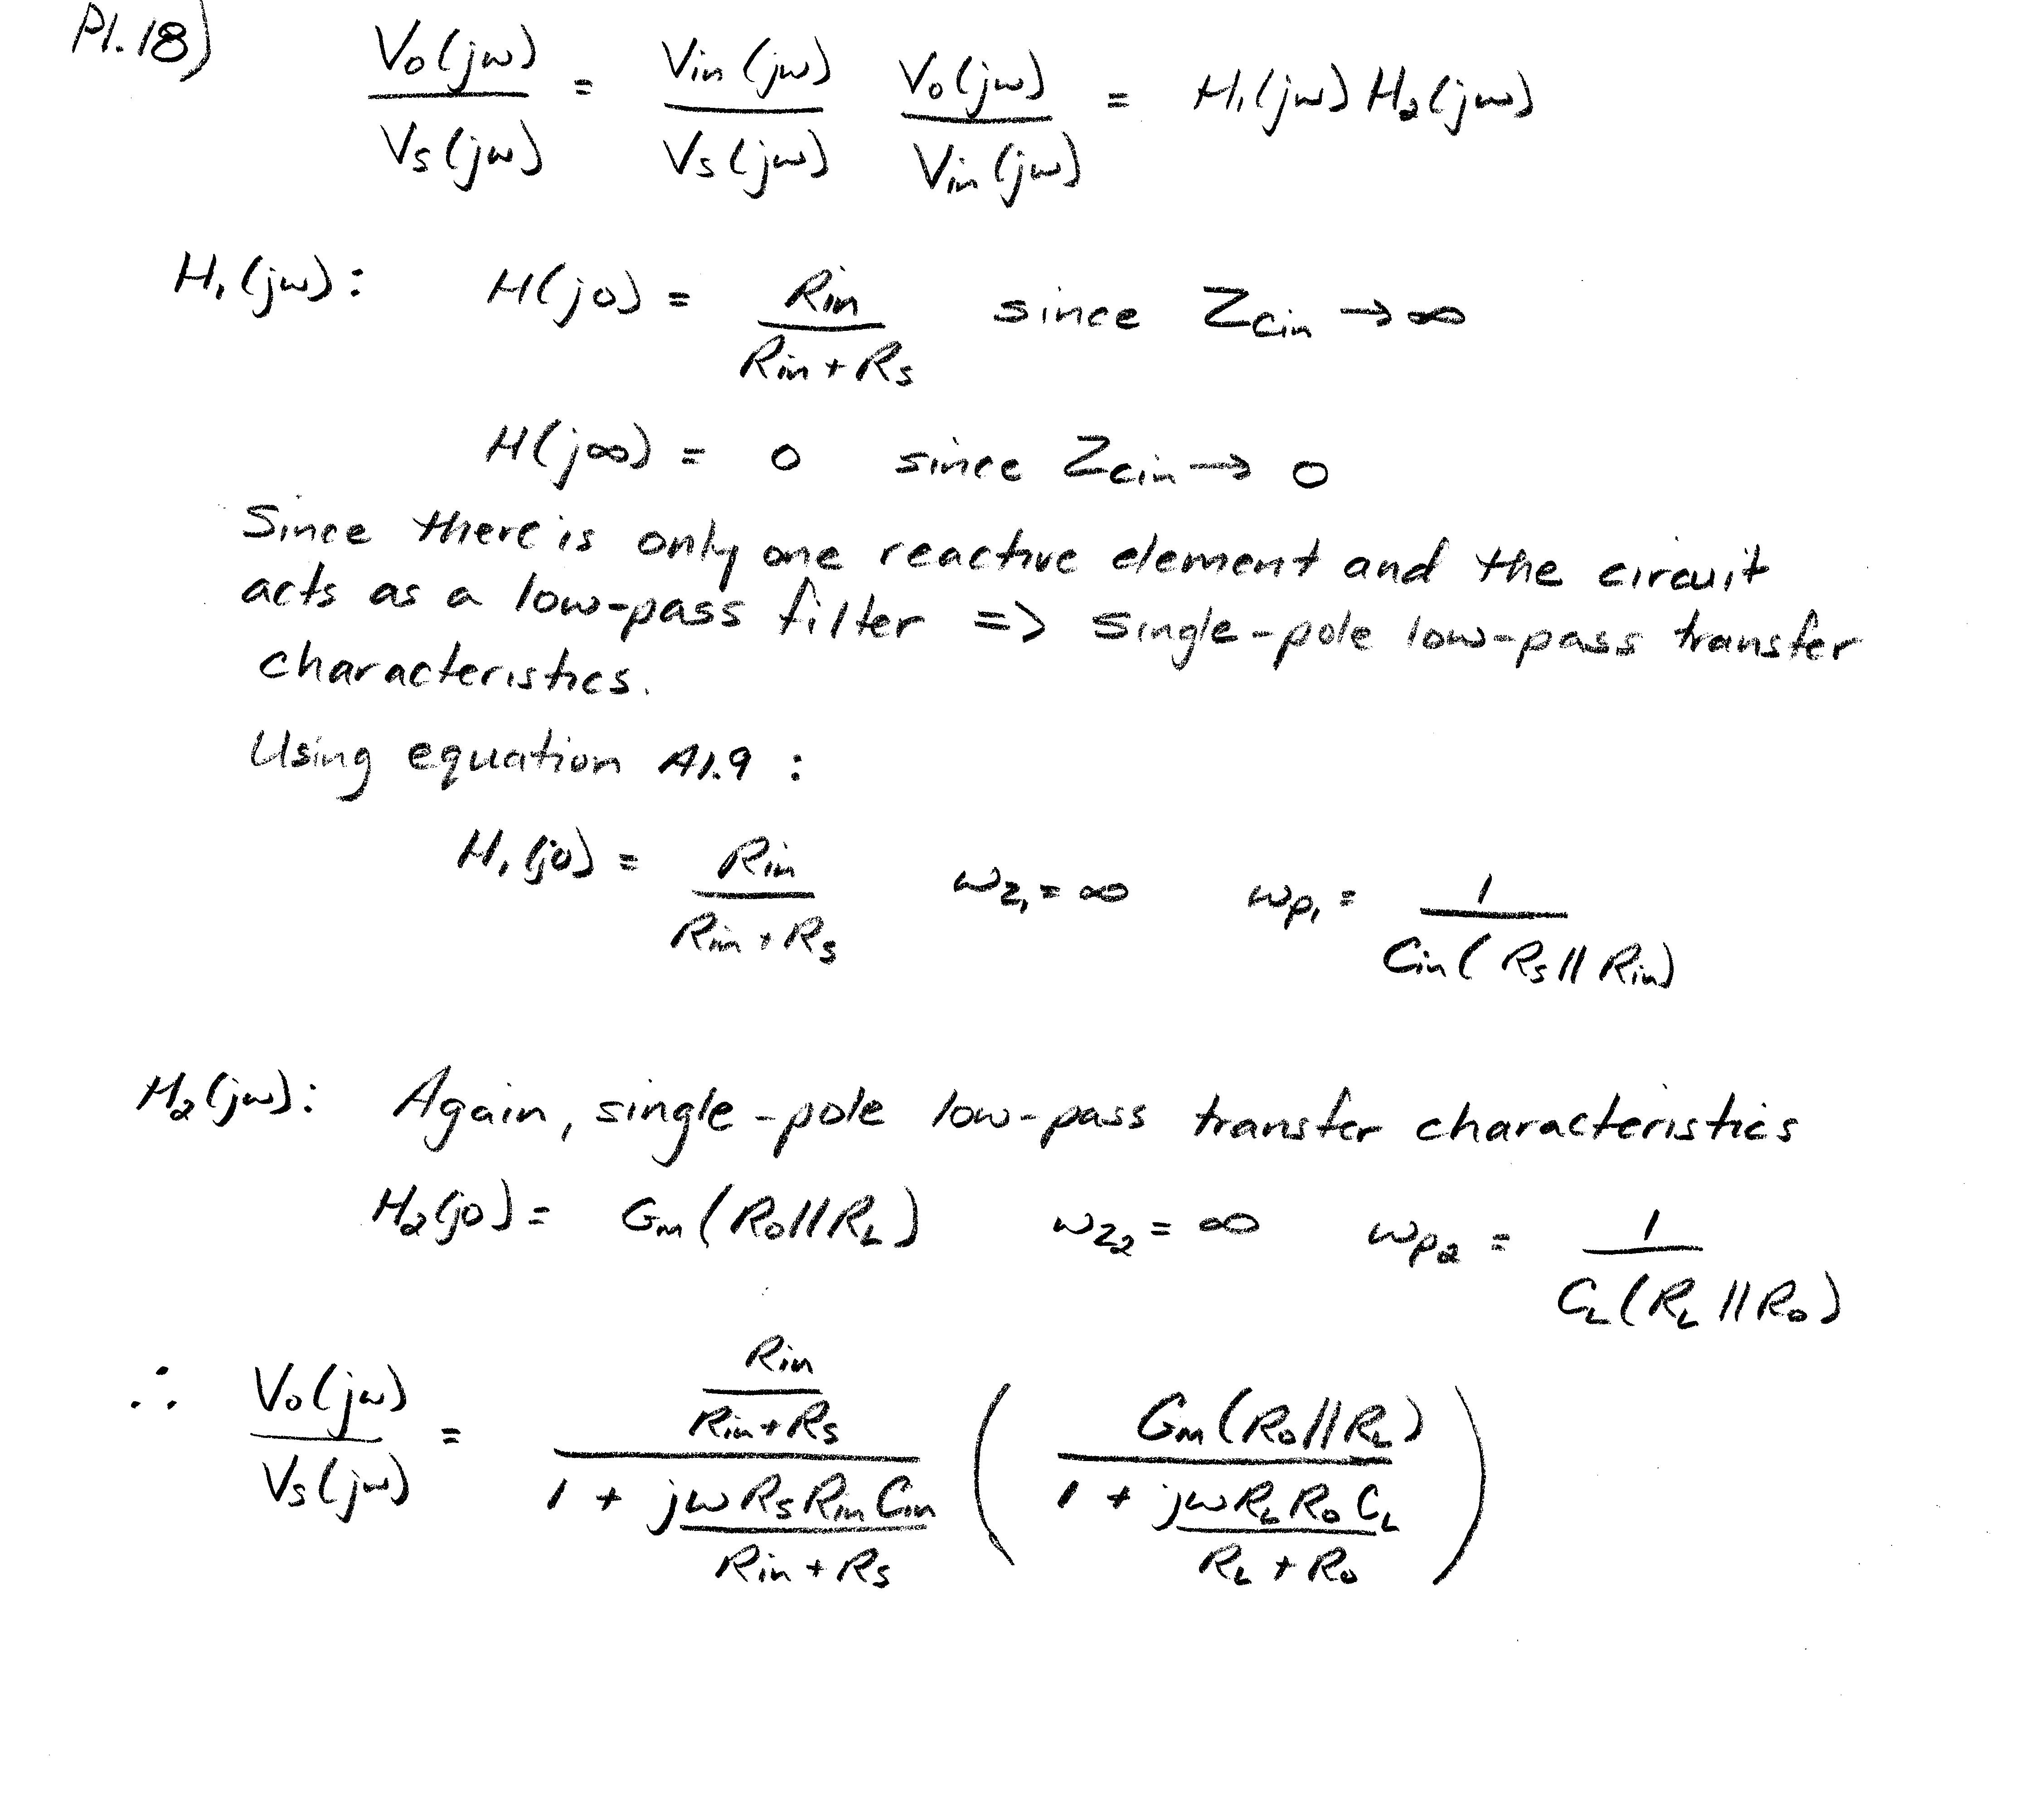 P1.18) Vo(jω)/Vs(jω) = Vin(jω)/Vs(jω) Vo(jω)/Vin(jω) = H1(jω) H2(jω)
H1(jω): H(j0) = Rin/(Rin + Rs) since Zcin → ∞
H(j∞) = 0 since Zcin → 0
Since there is only one reactive element and the circuit
acts as a low-pass filter => single-pole low-pass transfer
characteristics.
Using equation A1.9 :
H1(j0) = Rin/(Rin + Rs) ωz1 = ∞ ωp1 = 1/(Cin(Rs||Rin))
H2(jω): Again, single-pole low-pass transfer characteristics
H2(j0) = Gm(Ro||RL) ωz2 = ∞ ωp2 = 1/(CL(RL||Ro))
∴ Vo(jω)/Vs(jω) = (Rin/(Rin+Rs))/(1 + jωRsRinCin/(Rin + Rs)) (Gm(Ro||RL)/(1 + jωRLRoCL/(RL + Ro)))